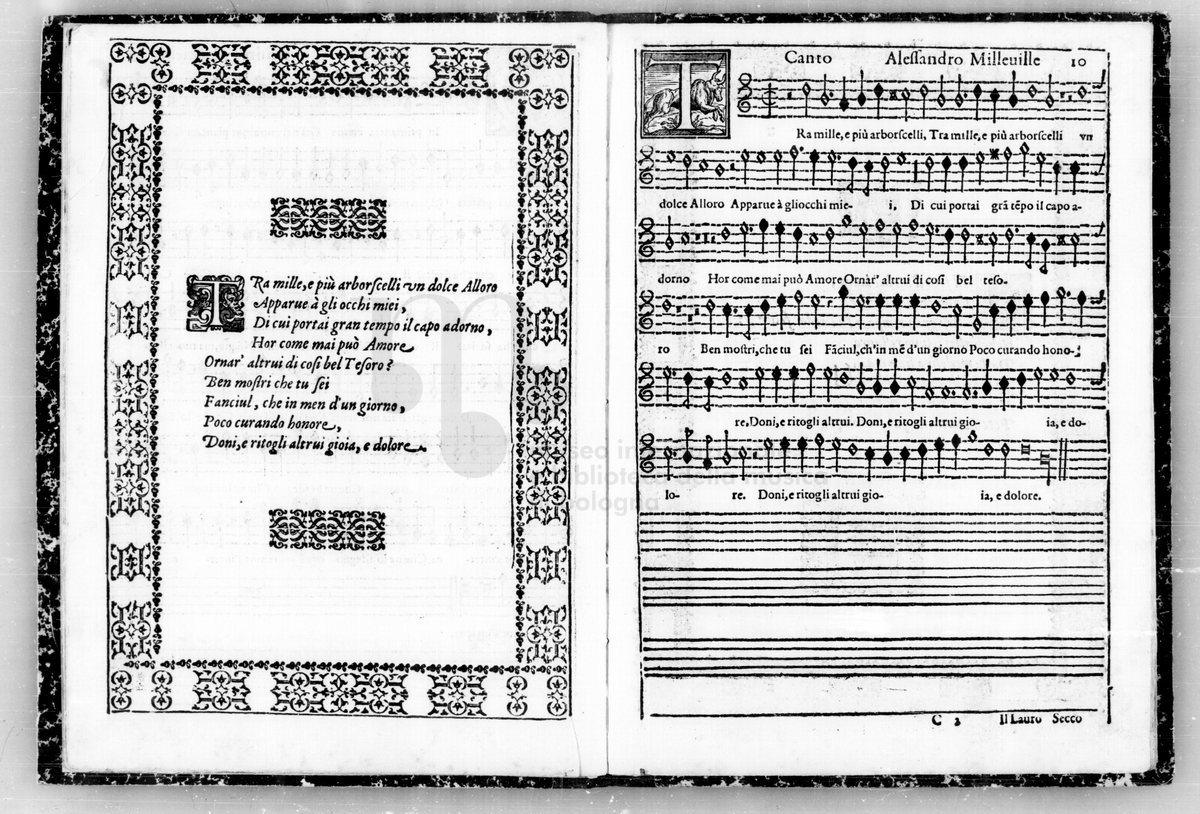 TRa mille, e più arborſcelli vn dolce Alloro
Apparue à gli occhi miei,
Di cui portai gran tempo il capo adorno,
Hor come mai può Amore
Ornar' altrui di coſi bel Teſoro?
Ben moſtri che tu ſei
Fanciul, che in men d'un giorno,
Poco curando honore,
Doni, e ritogli altrui gioia, e dolore.
Canto Aleſſandro Milleuille 10
TRa mille, e più arborſcelli, Tra mille, e più arborſcelli vn
dolce Alloro Apparue à gliocchi mie- i, Di cui portai grã tẽpo il capo a-
dorno Hor come mai può Amore Ornàr' altrui di coſi bel teſo-
ro Ben moſtri, che tu ſei Fãciul, ch'in mẽ d'un giorno Poco curando hono-
re, Doni, e ritogli altrui. Doni, e ritogli altrui gio- ia, e do-
lo- re. Doni, e ritogli altrui gio- ia, e dolore.
C 2 Il Lauro Secco
museo in
biblioteca della musica
bologna